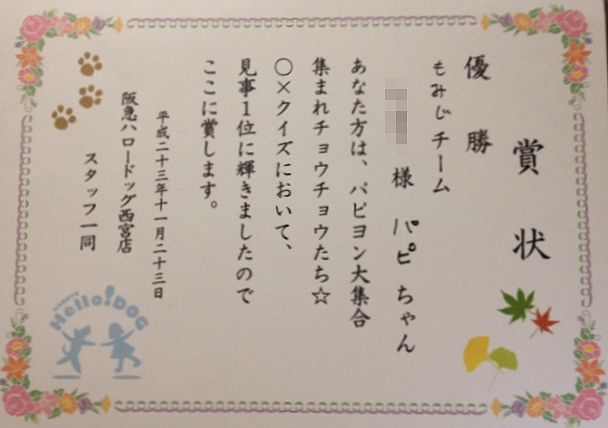 賞状
優勝
もみじチーム
様 パピちゃん
あなた方は、パピヨン大集合
集まれチョウチョウたち☆
○×クイズにおいて、
見事1位に輝きましたので
ここに賞します。
平成二十三年十一月二十三日
阪急ハロードッグ西宮店
スタッフ一同
Hello!DOG